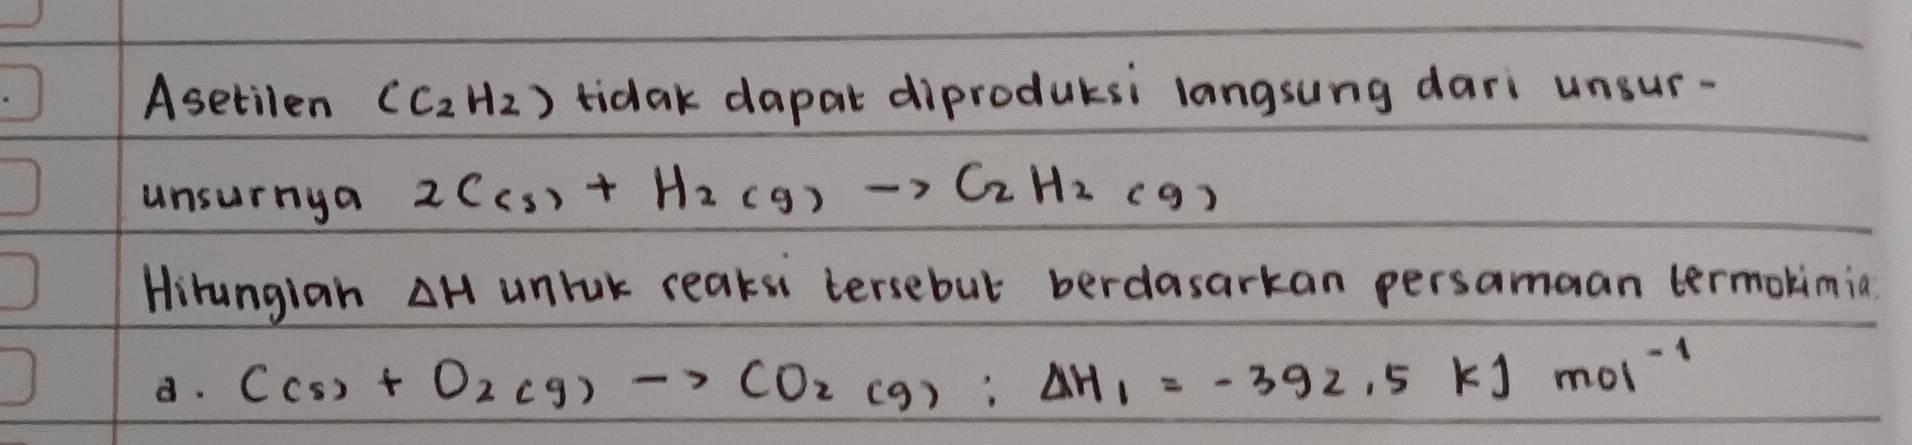 Asetilen (C₂H₂) tidak dapat diproduksi langsung dari unsur-
unsurnya 2C(s) + H₂ (g) -> C₂ H₂ (g)
Hitunglah ΔH untuk reaksi tersebut berdasarkan persamaan termokimia.
a. C(s) + O₂(g) -> CO₂ (g) ; ΔH₁ = -392,5 kJ mol⁻¹